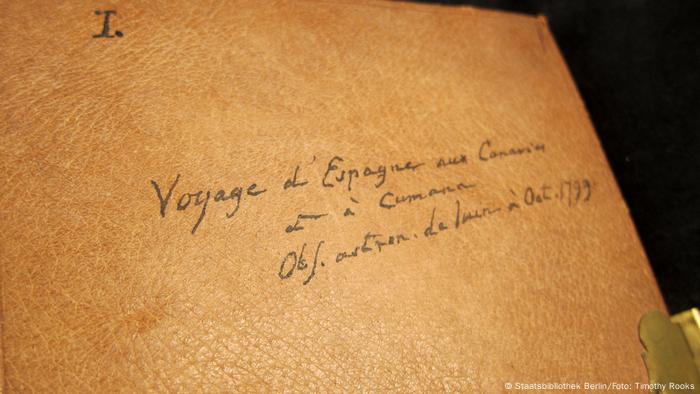 I.
Voyage d'Espagne aux Canaries
et à Cumana
Obs. astron. de Juin à Oct. 1799.
© Staatsbibliothek Berlin/Foto: Timothy Rooks